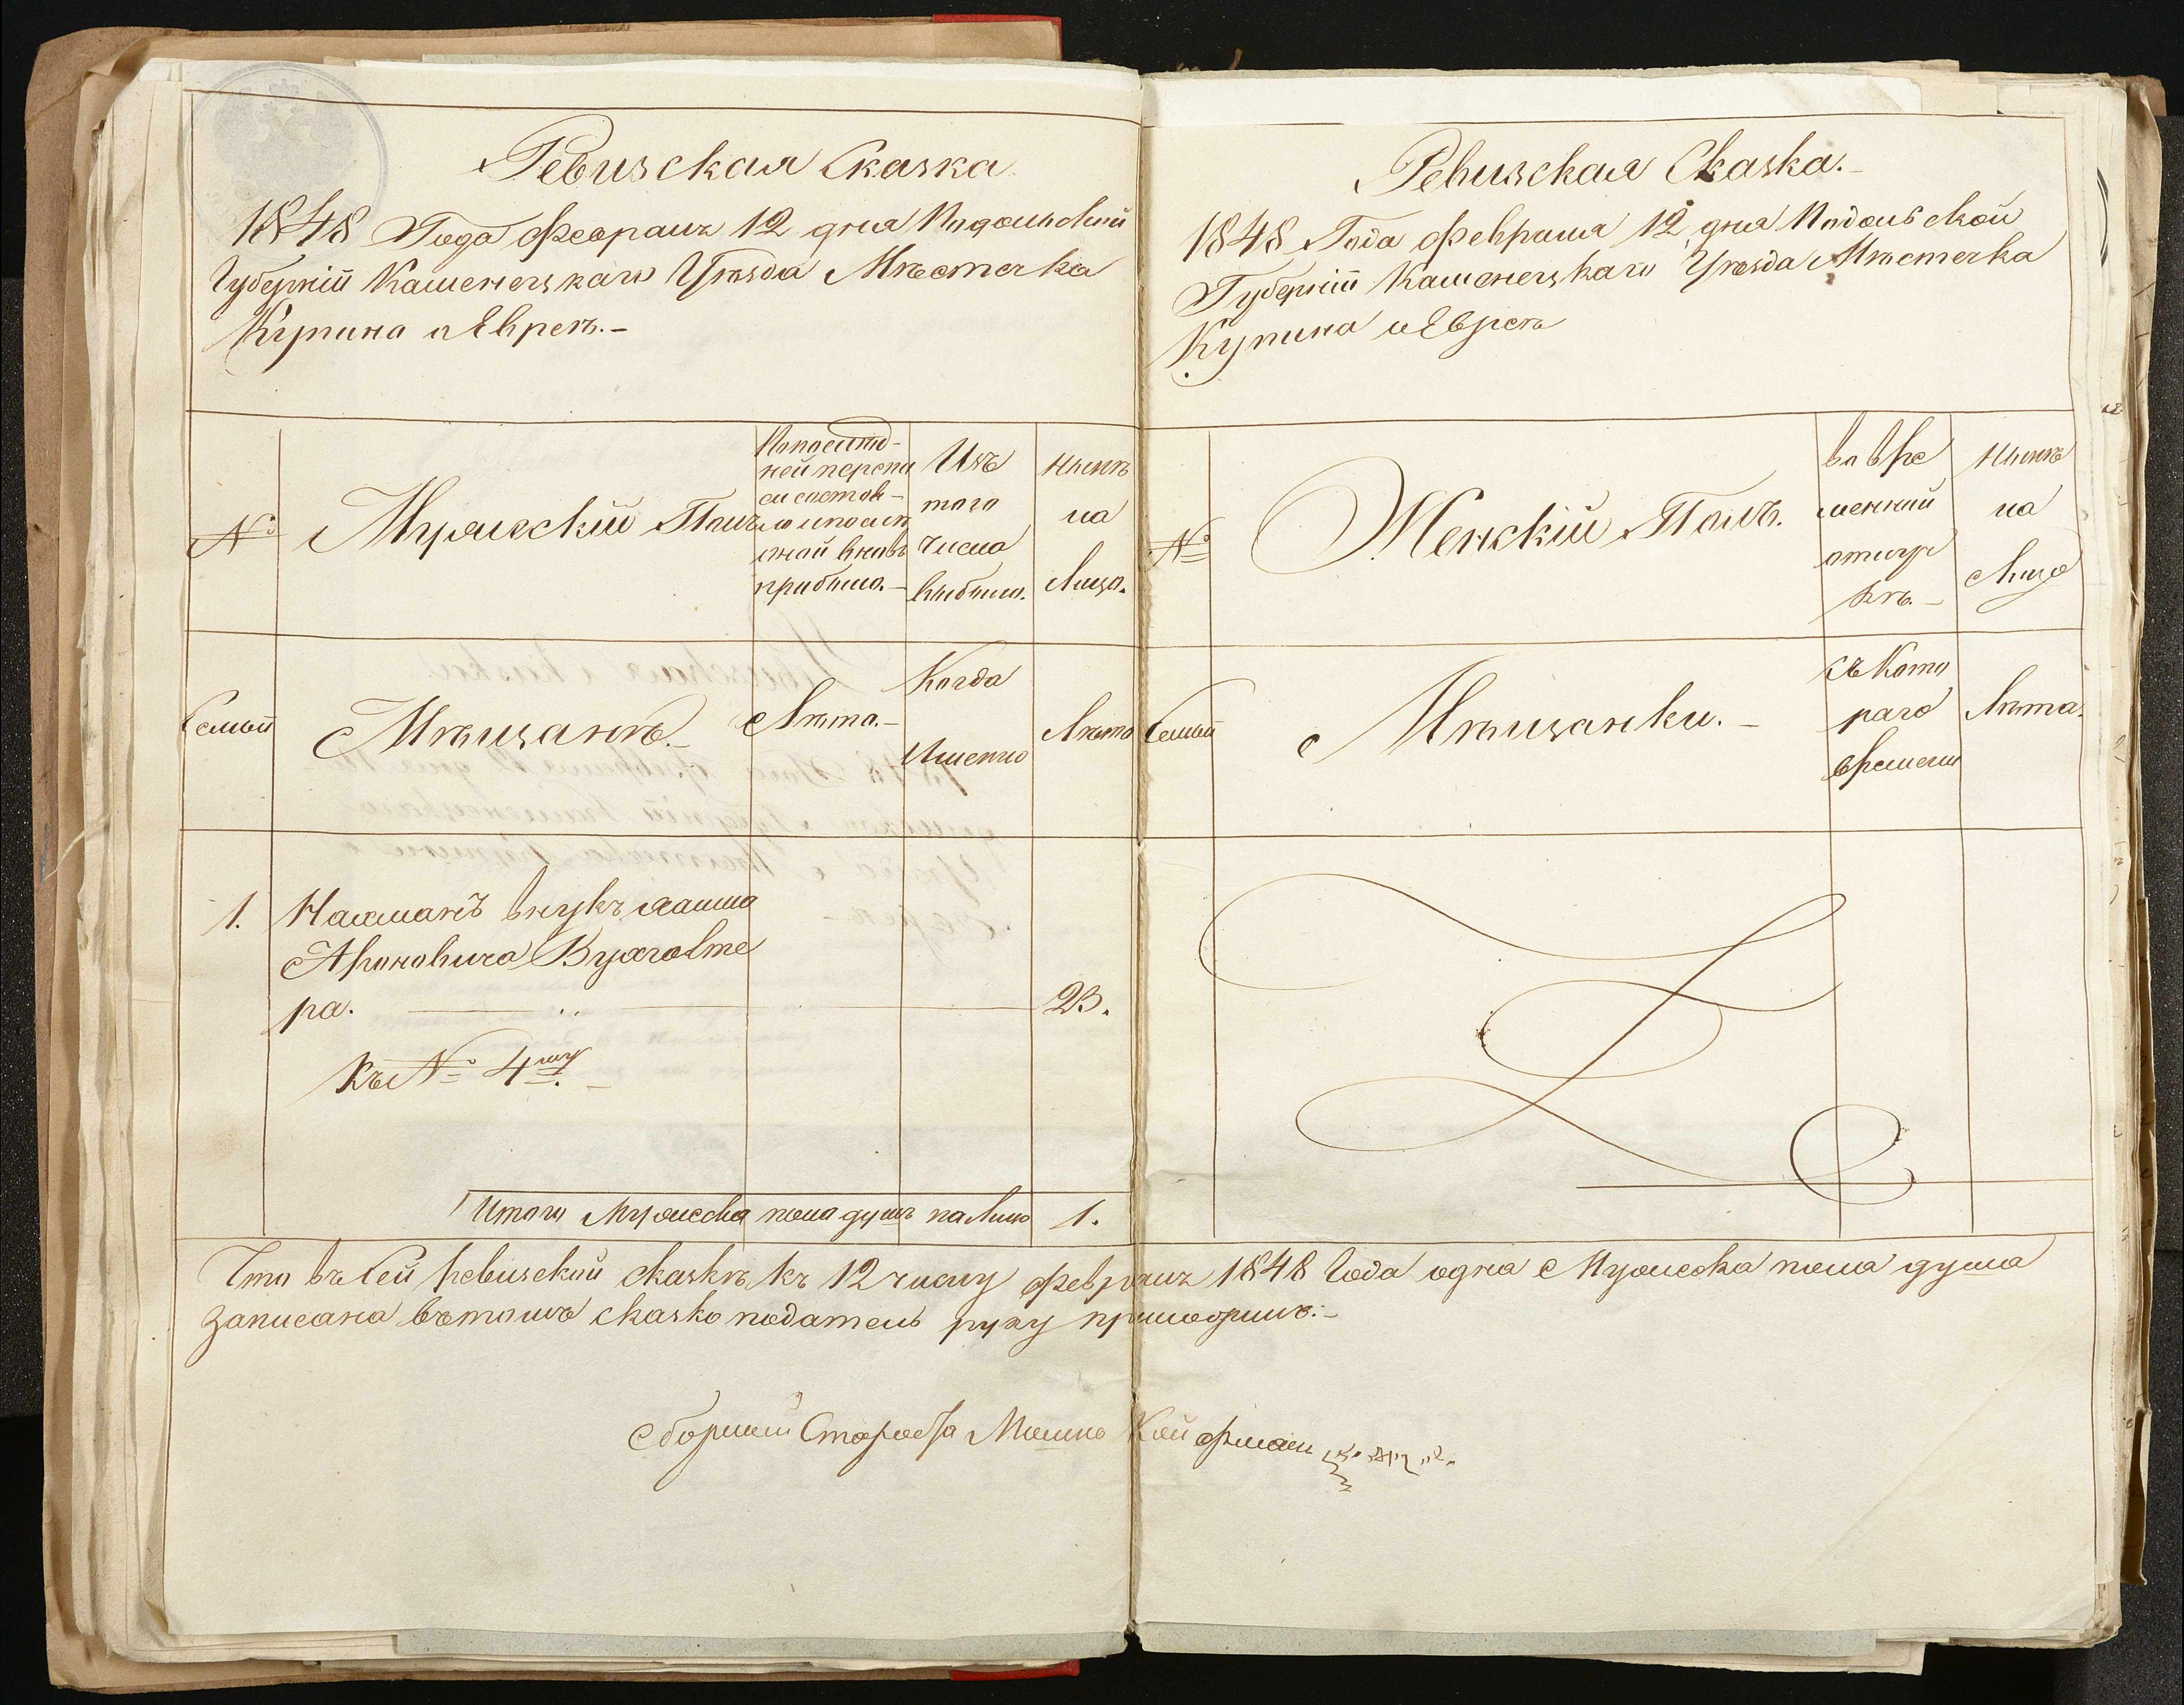 Ревизская Сказка
1848 Года Февраля 12 дня Подольской
Губерніи Каменецкаго Уѣзда Мѣстечка
Купина о Евреѣ.-
№
Мужескій Полъ
По послѣд-
ней перепи
си состоя-
ло и послѣ
оной вновь
прибыло.-
Изъ
того
числа
выбыло.
Нынѣ
на
Лицо.
Семьи
Мѣщанѣ.-
Лѣта.-
Когда
Именно
Лѣта
1. Нахманъ внукъ
Ароновича Бухгалте
ра. 23.
Къ № 4му. -
Итого Мужеска пола душъ на Лицо 1.
Ревизская Сказка.-
1848 Года Февраля 12 дня Подольской
Губерніи Каменецкаго Уѣзда Мѣстечка
Купина о Евреѣ
№
Женскій Полъ.
во вре
менной
отлуч
кѣ.-
Нынѣ
на
Лицо
Семьи
Мѣщанки.-
съ Кото
раго
времени
Лѣта.
Что въ сей ревизской сказкѣ къ 12 числу Февраля 1848 Года одна Мужеска пола душа
записана въ томъ сказко податель руку приложилъ:-
Сборный Староста Мошко Койфман